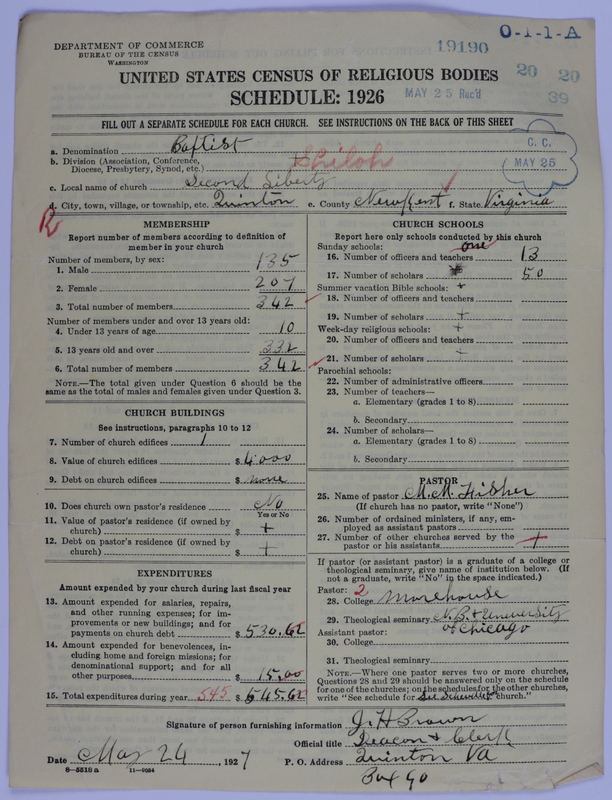 O-1-1-A
DEPARTMENT OF COMMERCE
BUREAU OF THE CENSUS
WASHINGTON
19190
20 20
39
UNITED STATES CENSUS OF RELIGIOUS BODIES
SCHEDULE: 1926
MAY 25 Rec'd
FILL OUT A SEPARATE SCHEDULE FOR EACH CHURCH. SEE INSTRUCTIONS ON THE BACK OF THIS SHEET
C. C.
MAY 25
a. Denomination Baptist
b. Division (Association, Conference, Diocese, Presbytery, Synod, etc.) Shiloh
c. Local name of church Second Liberty
d. City, town, village, or township, etc. Quinton e. County New Kent f. State Virginia
R
MEMBERSHIP
Report number of members according to definition of
member in your church
Number of members, by sex:
1. Male 135
2. Female 207
3. Total number of members 342
Number of members under and over 13 years old:
4. Under 13 years of age 10
5. 13 years old and over 332
6. Total number of members 342
NOTE.—The total given under Question 6 should be the
same as the total of males and females given under Question 3.
CHURCH BUILDINGS
See instructions, paragraphs 10 to 12
7. Number of church edifices 1
8. Value of church edifices $ 4000
9. Debt on church edifices $ none
10. Does church own pastor's residence No
Yes or No
11. Value of pastor's residence (if owned by
church) $ +
12. Debt on pastor's residence (if owned by
church) $ +
EXPENDITURES
Amount expended by your church during last fiscal year
13. Amount expended for salaries, repairs,
and other running expenses; for im-
provements or new buildings; and for
payments on church debt $ 530.62
14. Amount expended for benevolences, in-
cluding home and foreign missions; for
denominational support; and for all
other purposes $ 15.00
15. Total expenditures during year 545 $ 545.62
CHURCH SCHOOLS
Report here only schools conducted by this church
Sunday schools: one
16. Number of officers and teachers 13
17. Number of scholars 50
Summer vacation Bible schools: +
18. Number of officers and teachers
19. Number of scholars +
Week-day religious schools: +
20. Number of officers and teachers
21. Number of scholars +
Parochial schools:
22. Number of administrative officers
23. Number of teachers—
a. Elementary (grades 1 to 8)
b. Secondary
24. Number of scholars—
a. Elementary (grades 1 to 8)
b. Secondary
PASTOR
25. Name of pastor M. M. Fisher
(If church has no pastor, write "None")
26. Number of ordained ministers, if any, em-
ployed as assistant pastors
27. Number of other churches served by the
pastor or his assistants +
If pastor (or assistant pastor) is a graduate of a college or
theological seminary, give name of institution below. (If
not a graduate, write "No" in the space indicated.)
Pastor: 2
28. College Morehouse
29. Theological seminary N.B. + University
of Chicago
Assistant pastor:
30. College
31. Theological seminary
NOTE.—Where one pastor serves two or more churches,
Questions 28 and 29 should be answered only on the schedule
for one of the churches; on the schedules for the other churches,
write "See schedule for church."
Signature of person furnishing information J. H. Brown
Official title Deacon + Clerk
Date May 24, 1927 P. O. Address Quinton Va
Box 90
8-5518 a 11-9084